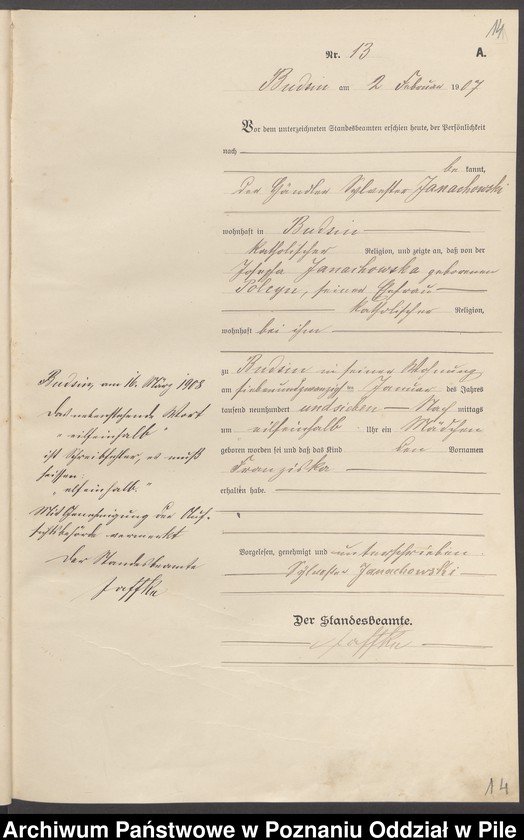 14
Nr. 13 A.
Budsin am 2 Februar 1907
Vor dem unterzeichneten Standesbeamten erschien heute, der Persönlichkeit
nach
be kannt,
der Händler Sylvester Janachowski
wohnhaft in Budsin
katholischer Religion, und zeigte an, daß von der
Josepha Janachowska geborenen
seiner Ehefrau
katholischer Religion,
wohnhaft bei ihm
zu Budsin in seiner Wohnung
am siebenundzwanzigsten Januar des Jahres
tausend neunhundert und sieben Nach mittags
um eilfeinhalb Uhr ein Mädchen
geboren worden sei und daß das Kind den Vornamen
Franziska
erhalten habe.
Vorgelesen, genehmigt und unterschrieben
Sylvester Janachowski
Der Standesbeamte.
Jaffke
Budsin, am 16. März 1908
Das nebenstehende Wort
"eilfeinhalb"
ist Schreibfehler, es muß
heißen:
"elfeinhalb."
Mit Genehmigung der Auf-
sichtsbehörde vermerkt
Der Standesbeamte
Jaffke
14
Archiwum Państwowe w Poznaniu Oddział w Pile